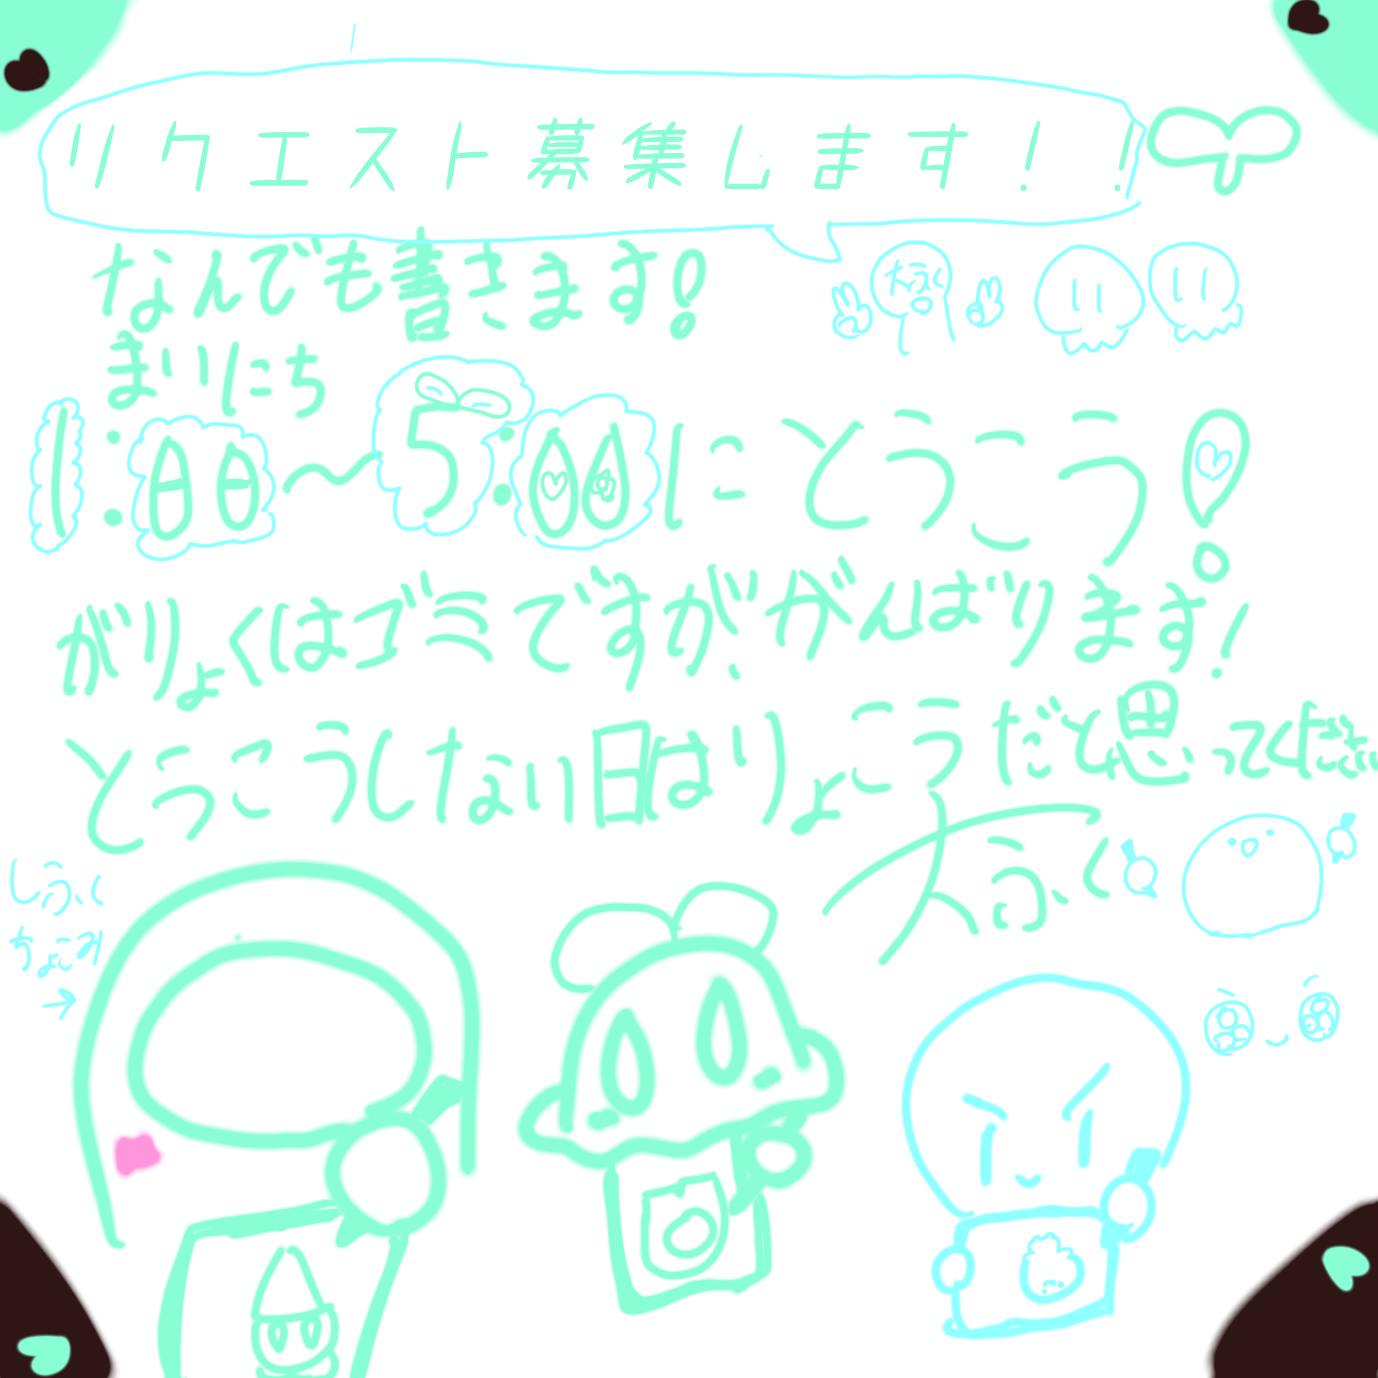 リクエスト募集します！！
なんでも書きます！
大ふく
まいにち
1:00～5:00にとうこう！
がりょくはゴミですが、がんばります！
とうこうしない日はりょこうだと思ってください
大ふく
しふく
ちょこみ
→